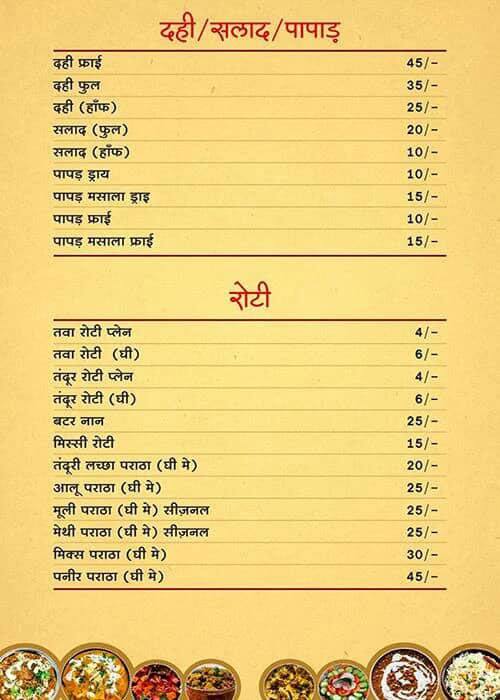 दही/सलाद/पापाड़
दही फ्राई 45/-
दही फुल 35/-
दही (हाँफ) 25/-
सलाद (फुल) 20/-
सलाद (हाँफ) 10/-
पापड़ ड्राय 10/-
पापड़ मसाला ड्राइ 15/-
पापड़ फ्राई 10/-
पापड़ मसाला फ्राई 15/-
रोटी
तवा रोटी प्लेन 4/-
तवा रोटी (घी) 6/-
तंदूर रोटी प्लेन 4/-
तंदूर रोटी (घी) 6/-
बटर नान 25/-
मिस्सी रोटी 15/-
तंदूरी लच्छा पराठा (घी मे) 20/-
आलू पराठा (घी मे) 25/-
मूली पराठा (घी मे) सीज़नल 25/-
मेथी पराठा (घी मे) सीज़नल 25/-
मिक्स पराठा (घी मे) 30/-
पनीर पराठा (घी मे) 45/-